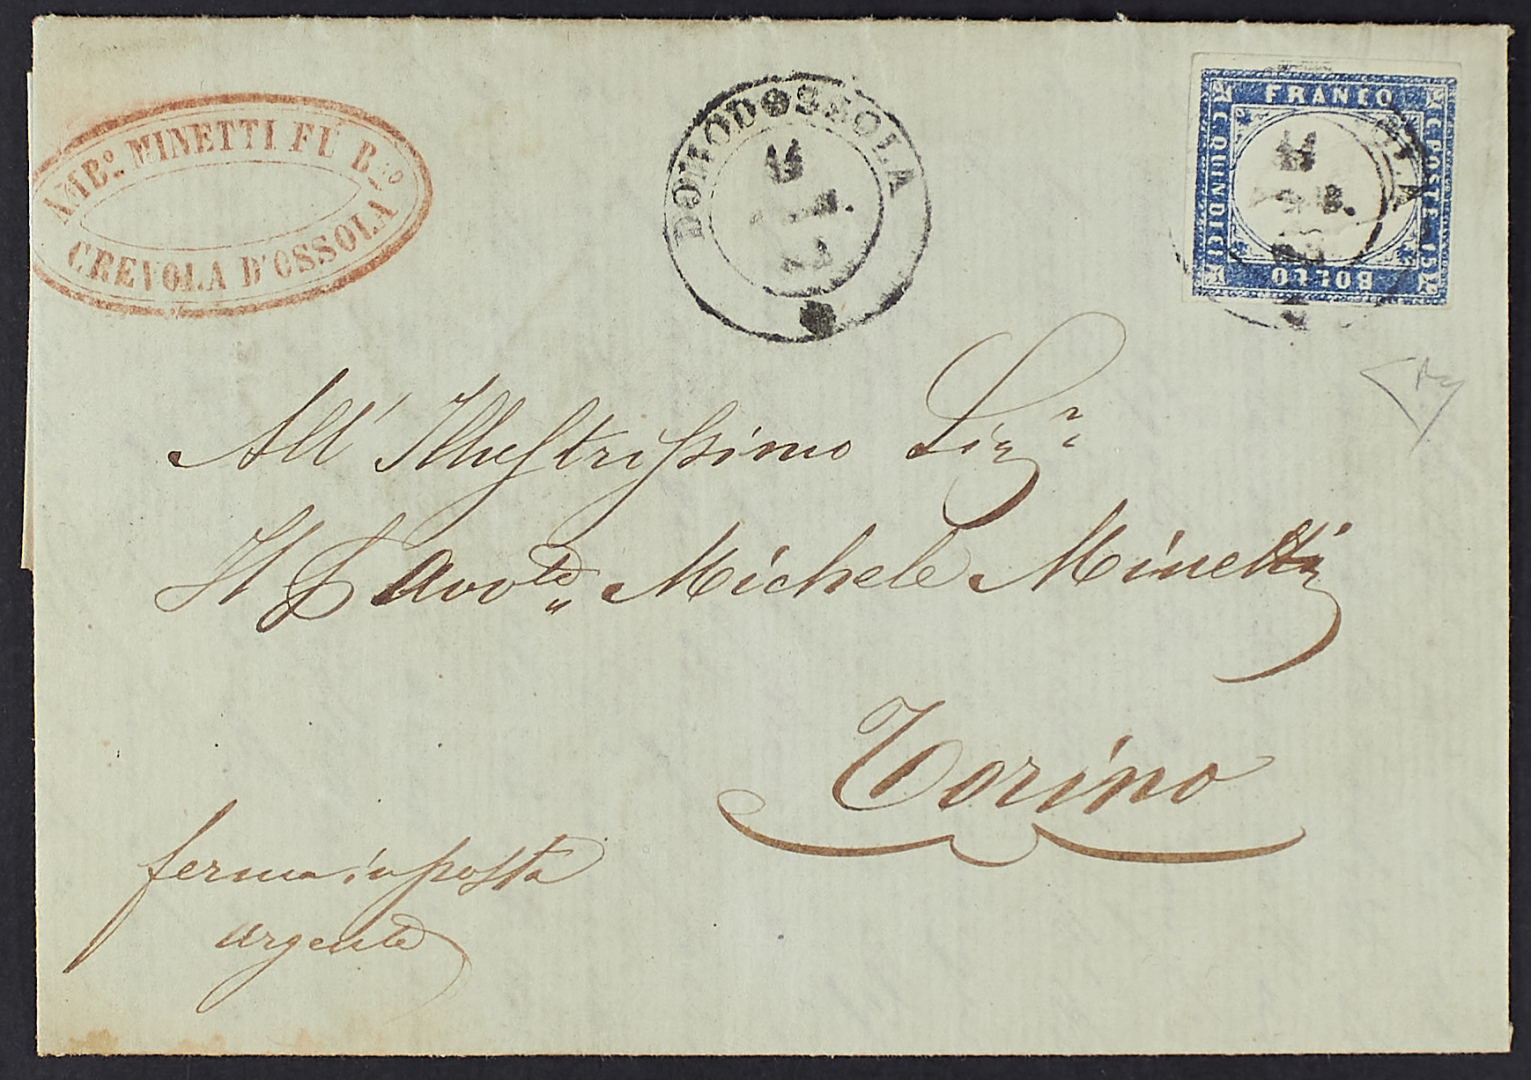 AMB.º MINETTI FÙ B.
CREVOLA D'OSSOLA
DOMODOSSOLA
14
FRANCO
C. QUINDICI
C. POSTE 15
BOLLO
14
All' Illustrissimo Sigr
Il S Avvto Michele Minetti
Torino
ferma in posta
urgente